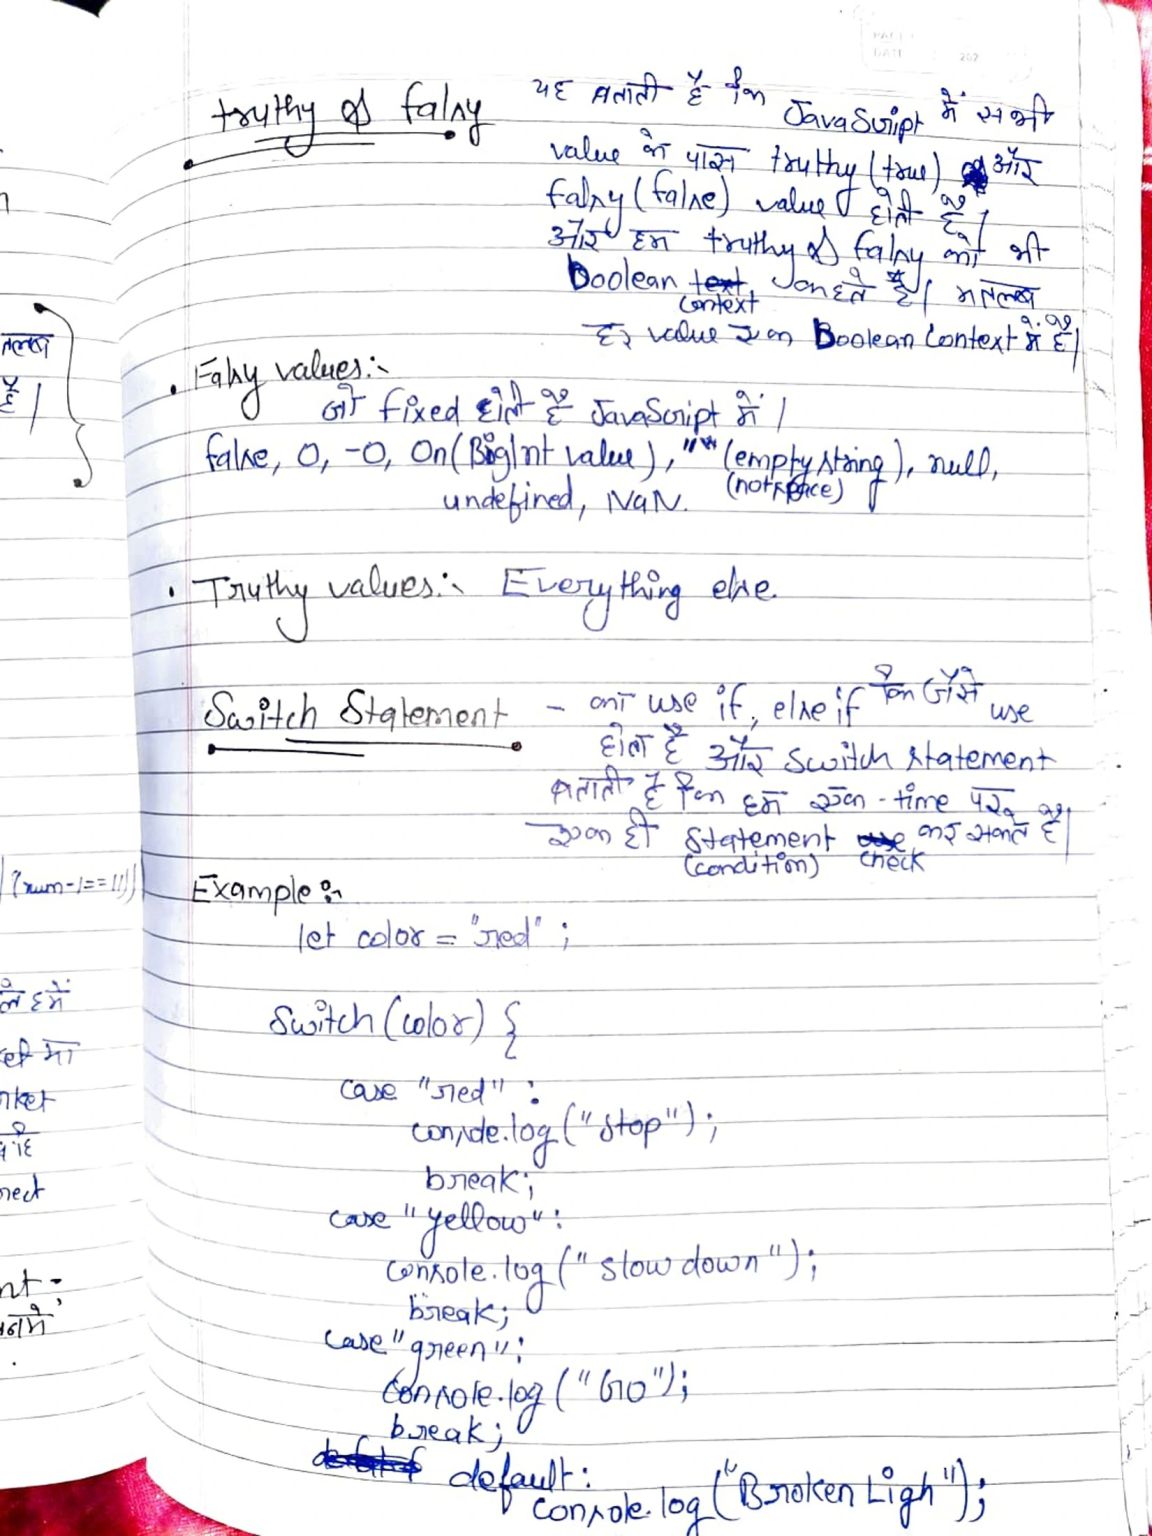 PAGE
DATE
202
truthy & falsy
यह बताती है कि JavaScript में सभी
value के पास truthy (true) और
falsy (false) value होती है।
और हम truthy & falsy को भी
Boolean text कहते है। मतलब
context
हर value एक Boolean Context में है।
• Falsy values:-
जो fixed होते है JavaScript में।
false, 0, -0, 0n (BigInt value), "" (empty string), null,
(not space)
undefined, NaN.
• Truthy values:- Everything else.
Switch Statement - का use if, else if के जैसे use
होता है और switch statement
बताती है कि हम एक-time पर
एक ही statement use कर सकते है।
(condition) check
Example:-
let color = "red" ;
Switch (color) {
case "red" :
console.log ("stop");
break;
case "yellow" :
console.log (" slow down ");
break;
case "green" :
console.log ("Go");
break;
default :
console.log ("Broken Ligh");
मतलब
है।
(num-1==11)
हमें
rect
nt -